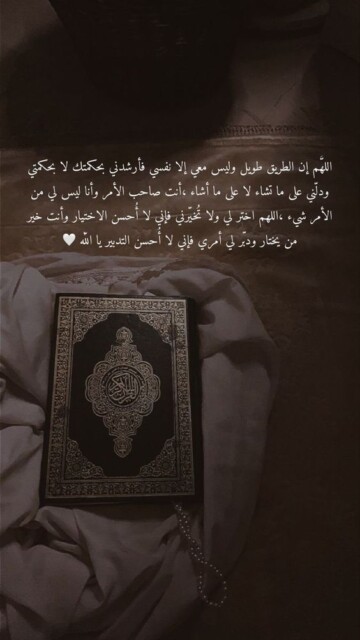 اللَّهم إن الطريق طويل وليس معي إلا نفسي فأرشدني بحكمتك لا بحكمتي
ودلّني على ما تشاء لا على ما أشاء ،أنت صاحب الأمر وأنا ليس لي من
الأمر شيء ،اللهم اختر لي ولا تُخيّرني فإني لا أُحسن الاختيار وأنت خير
من يختار ودبّر لي أمري فإني لا أُحسن التدبير يا الله 🤍
القرآن الكريم